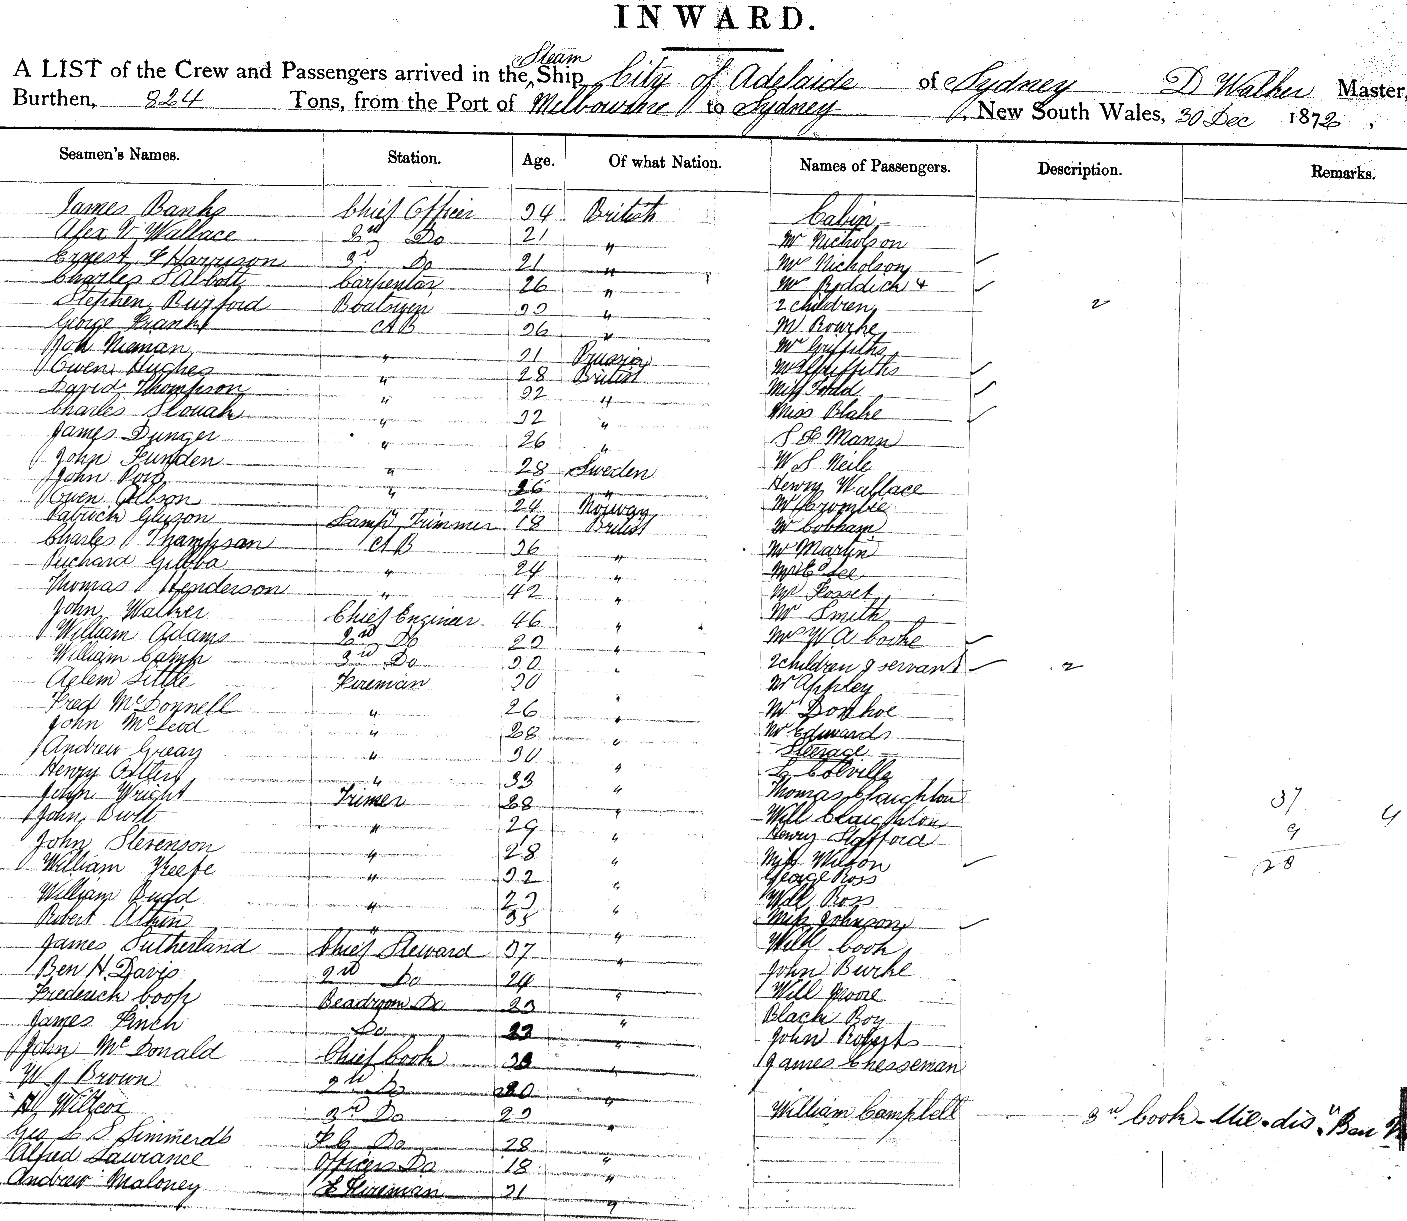 INWARD.
A LIST of the Crew and Passengers arrived in the Steam Ship City of Adelaide of Sydney D Walker Master,
Burthen, 824 Tons, from the Port of Melbourne to Sydney New South Wales, 30 Dec 1872,
Seamen's Names. Station. Age. Of what Nation. Names of Passengers. Description. Remarks.
James Banks Chief Officer 34 British Cabin
Alex Wallace 2nd Do 21 " Mr Nicholson
Ernest F Harrison 3rd Do 21 " Mrs Nicholson
Charles S Abbott Carpenter 26 " Mr Roddick &
Stephen Burford Boatswn " 2 children 2
George Frank AB 36 " Mr Rourke
Jon Neman " 21 Prussia Mr Griffiths
Owen Hughes " 28 British Mrs Griffiths
David Thompson " 32 " Miss Todd
Charles Slouah " 32 " Miss Blake
James Dunger " 26 " S F Mann
John Funden " 28 Sweden W S Neile
John " 26 " Henry Wallace
Owen Gibson " 24 Norway Mr Crombie
Patrick Gleeson Lamp Trimmer 18 British Mr Cobham
Charles Thompson AB 36 " Mr Martin
Richard " 24 "
Thomas Henderson " 42 " Mr Fosset
John Walker Chief Engineer 46 " Mr Smith
William Adams 2nd Do " Mrs W A Cooke
William Camp 3rd Do 30 " 2 children & servant 2
Little Fireman 30 " Mr Appley
Fred McDonnell " 26 " Mr Donhoe
John McLeod " 28 " Mr Edwards
Andrew Greay " 30 " Steerage
Henry " 33 " L Colville
John Wright Trimer 28 " Thomas Claughton 37
John Burt " 29 " Will Claughton 9 4
John Stevenson " 28 " Henry Stafford 28
William Keefe " 32 " Miss Wilson
William Budd " 23 " George Ross
Robert Atkin " 35 Will Ross
James Sutherland Chief Steward 37 " Miss Johnson
Ben H. Davis 2nd Do 24 Will Cook
Frederick Cook Beadroom Do 23 " John Burke
James Finch Do 23 " Will Moore
John McDonald Chief Cook " Black Boy
W J Brown 2nd Do 20 " John Roberts
H Wilcox 3rd Do " James Chesseman
Geo L S Simmonds F C Do 28 William Campbell 3rd Cook
Alfred Lawrance Officers Do 18 "
Andrew Maloney Fireman 21 "